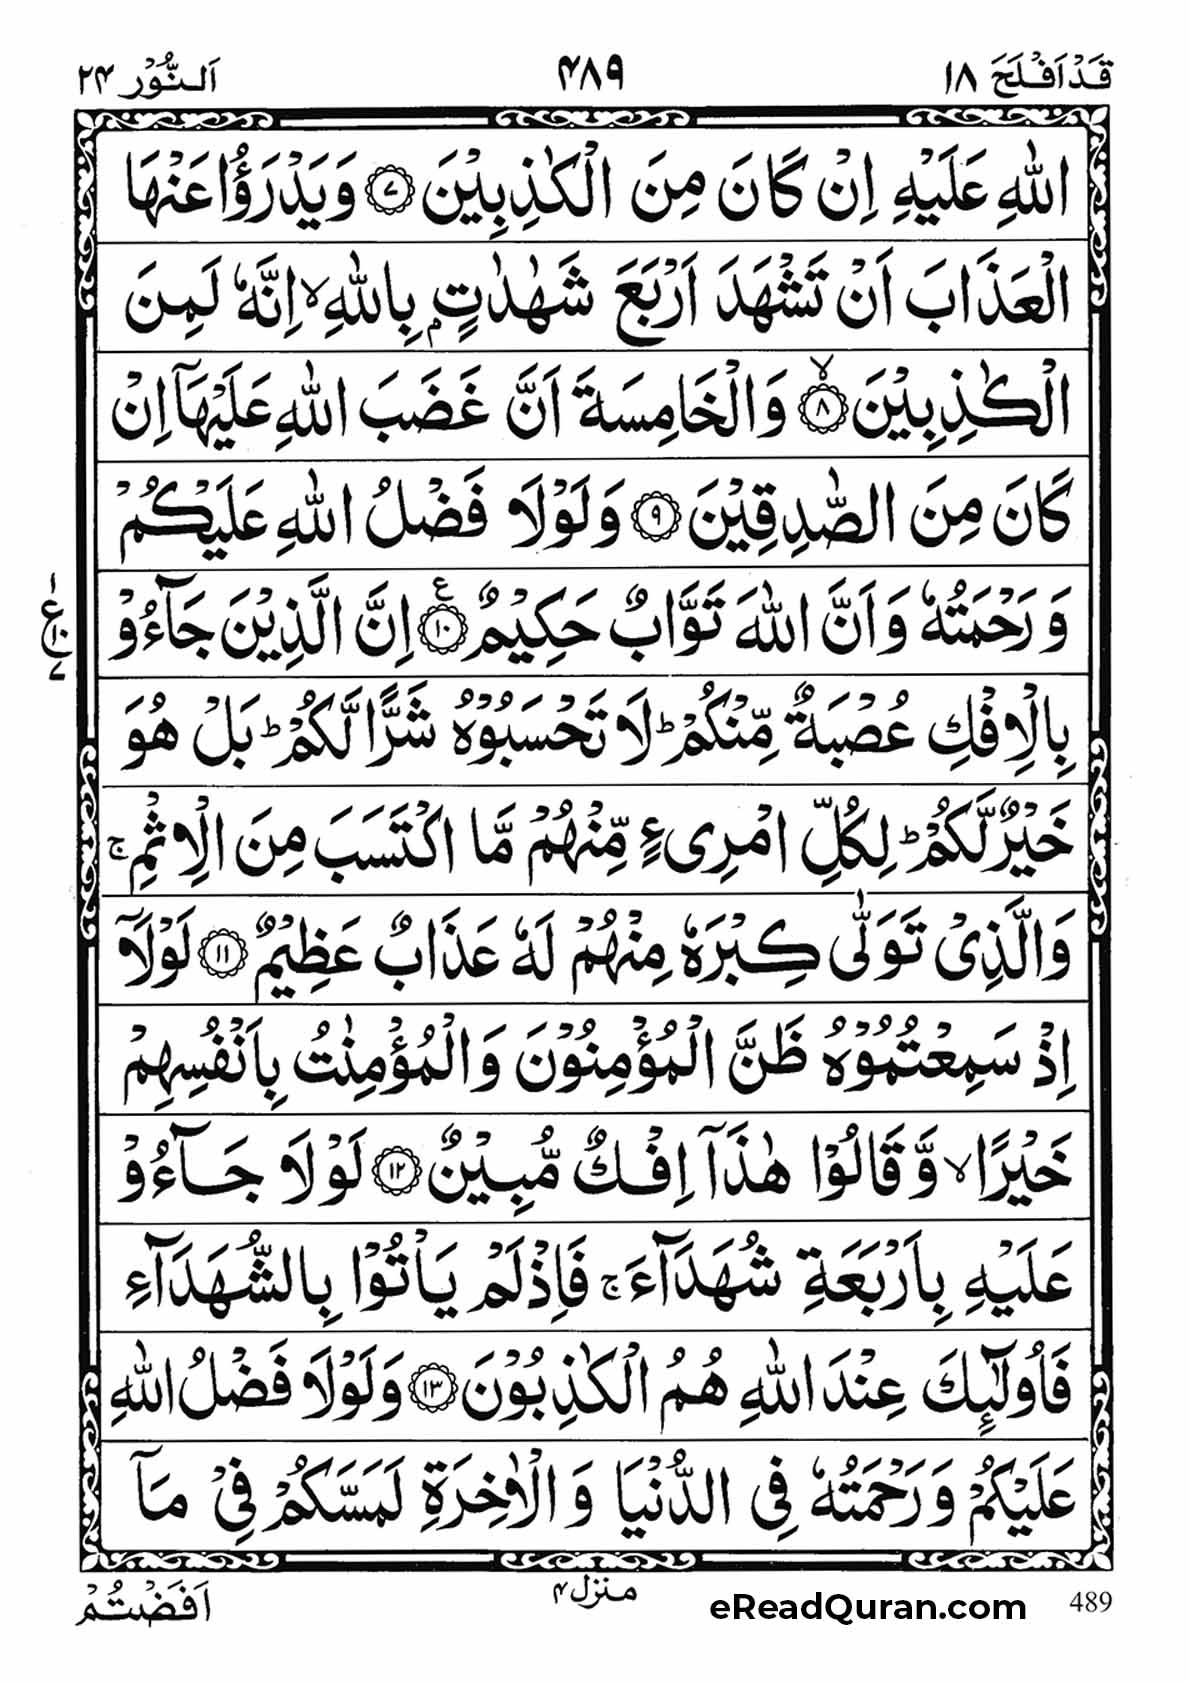 قَدْ اَفْلَحَ ۱۸
۴۸۹
اَلنُّوْر ۲۴
اللّٰهِ عَلَيْهِ اِنْ كَانَ مِنَ الْكٰذِبِيْنَ ۷ وَيَدْرَؤُا عَنْهَا
الْعَذَابَ اَنْ تَشْهَدَ اَرْبَعَ شَهٰدٰتٍۭ بِاللّٰهِ ۙ اِنَّهٗ لَمِنَ
الْكٰذِبِيْنَ ۙ ۸ وَالْخَامِسَةَ اَنَّ غَضَبَ اللّٰهِ عَلَيْهَاۤ اِنْ
كَانَ مِنَ الصّٰدِقِيْنَ ۹ وَلَوْلَا فَضْلُ اللّٰهِ عَلَيْكُمْ
وَرَحْمَتُهٗ وَاَنَّ اللّٰهَ تَوَّابٌ حَكِيْمٌ ۱۰ ع اِنَّ الَّذِيْنَ جَآءُوْ
۱
ع ۱۰
۷
بِالْاِفْكِ عُصْبَةٌ مِّنْكُمْ ؕ لَا تَحْسَبُوْهُ شَرًّا لَّكُمْ ؕ بَلْ هُوَ
خَيْرٌ لَّكُمْ ؕ لِكُلِّ امْرِیءٍ مِّنْهُمْ مَّا اكْتَسَبَ مِنَ الْاِثْمِ ۚ
وَالَّذِیْ تَوَلّٰى كِبْرَهٗ مِنْهُمْ لَهٗ عَذَابٌ عَظِيْمٌ ۱۱ لَوْلَاۤ
اِذْ سَمِعْتُمُوْهُ ظَنَّ الْمُؤْمِنُوْنَ وَالْمُؤْمِنٰتُ بِاَنْفُسِهِمْ
خَيْرًا ۙ وَّقَالُوْا هٰذَاۤ اِفْكٌ مُّبِيْنٌ ۱۲ لَوْلَا جَآءُوْ
عَلَيْهِ بِاَرْبَعَةِ شُهَدَآءَ ۚ فَاِذْ لَمْ يَاْتُوْا بِالشُّهَدَآءِ
فَاُولٰٓئِكَ عِنْدَ اللّٰهِ هُمُ الْكٰذِبُوْنَ ۱۳ وَلَوْلَا فَضْلُ اللّٰهِ
عَلَيْكُمْ وَرَحْمَتُهٗ فِی الدُّنْيَا وَالْاٰخِرَةِ لَمَسَّكُمْ فِیْ مَاۤ
489
eReadQuran.com
منزل ۴
اَفَضْتُمْ